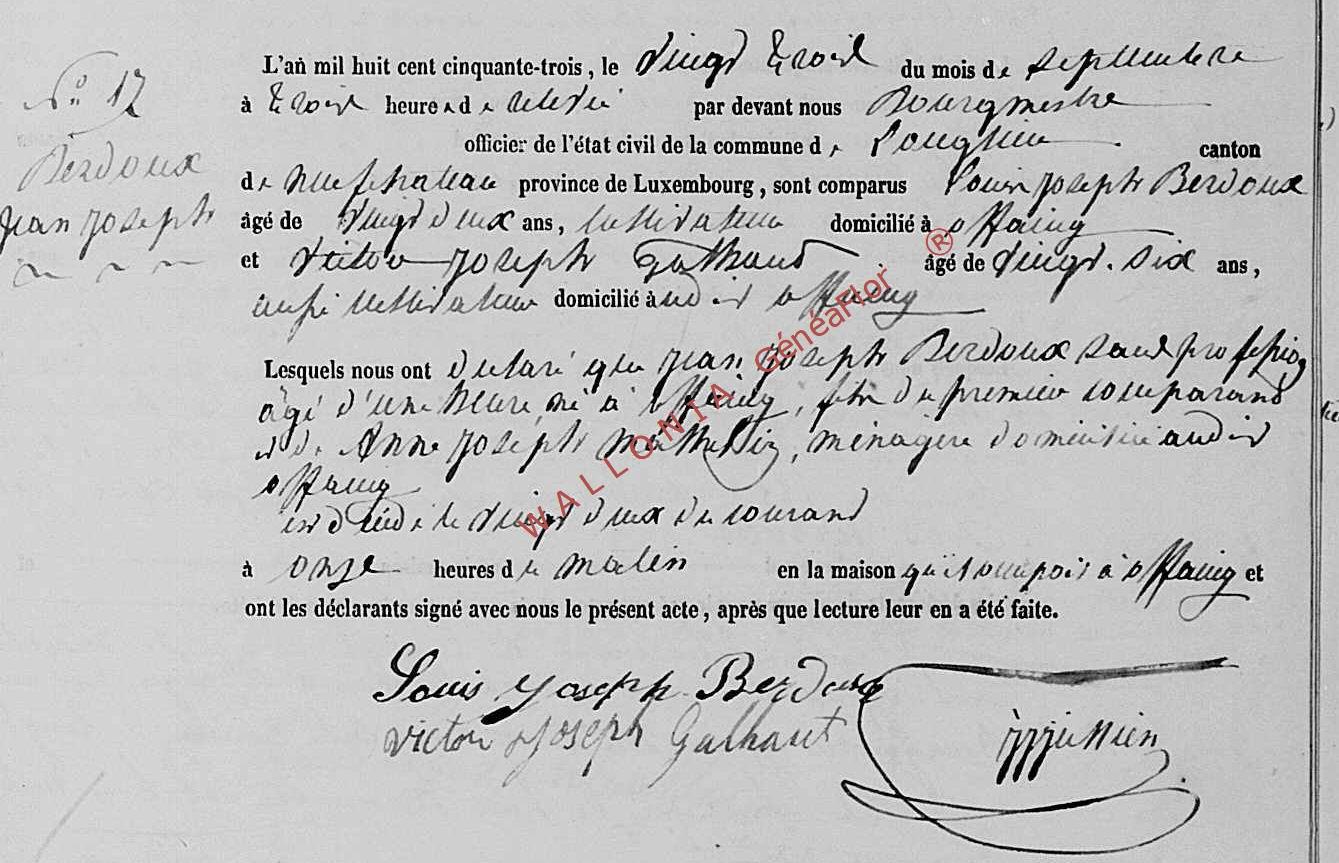 N° 17
Berdoux
Jean Joseph
L'an mil huit cent cinquante-trois, le vingt trois du mois de septembre
à trois heures de relevée par devant nous Bourgmestre
officier de l'état civil de la commune de Longlier canton
de Neufchateau province de Luxembourg, sont comparus Louis Joseph Berdoux
âgé de vingt deux ans, cultivateur domicilié à offaing
et Victor Joseph Galhaut âgé de vingt-six ans,
aussi cultivateur domicilié à audit offaing
Lesquels nous ont déclaré que Jean Joseph Berdoux sans profession
âgé d'une heure, né à offaing, fils du premier comparant
et de Anne Joseph, ménagère domiciliée audit
offaing
est décédé le vingt deux du courant
à onze heures du matin en la maison qu'il occupoit à offaing et
ont les déclarants signé avec nous le présent acte, après que lecture leur en a été faite.
Louis Joseph Berdoux
Victor Joseph Galhaut
WALLONIA GénéaFlor ®